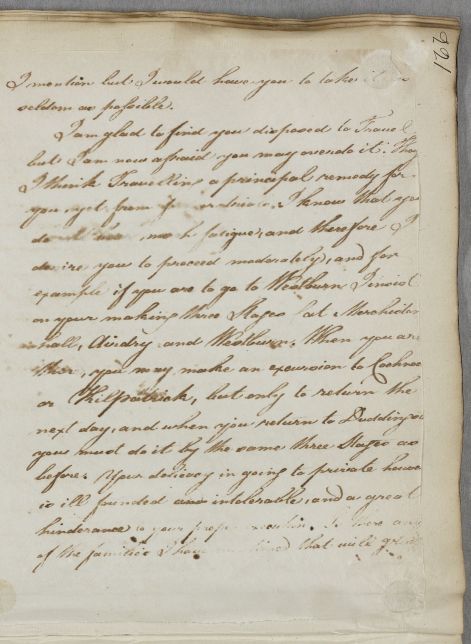 221
I mention but I would have you to take it as
seldom as possible.
I am glad to find you disposed to Travel
but I am now afraid you may overdo it. Tho
I think Travelling a principal remedy for
you yet from I know that you
do not fatigue, and therefore I
desire you to proceed moderately, and for
example if you are to go to Westburn I insist
on your making three Stages at
hall, Airdry and Westburn. When you are
there, you may make an excursion to Cochno
or Kilpatrick, but only to return the
next day, and when you return to Dudding
you must do it by the same three Stages as
before. Your delicacy in going to private house
is ill founded and intolerable, and a great
hinderance to your Is there any
of the families I have mentioned that will